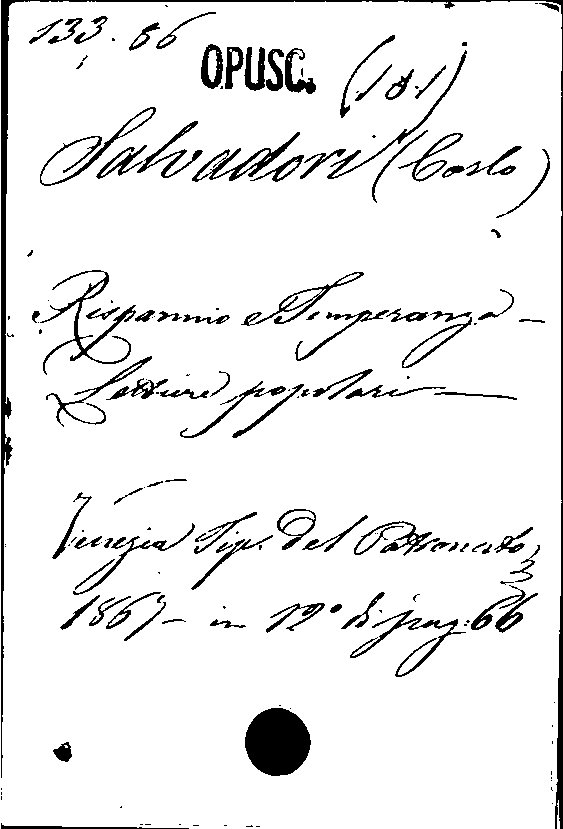 133. 86
OPUSC. (181)
Salvadori (Carlo)
Risparmio e Temperanza —
Letture popolari —
Venezia Tip. del Patronato
1867 — in 12° di pag: 66